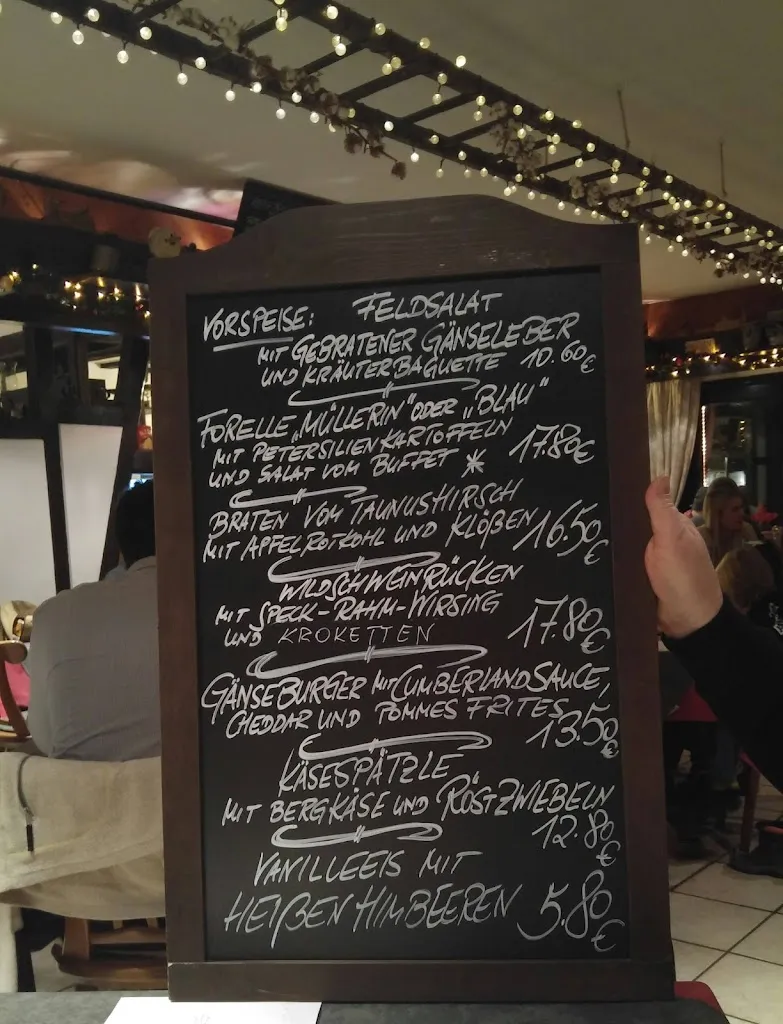 VORSPEISE: FELDSALAT
MIT GEBRATENER GÄNSELEBER
UND KRÄUTERBAGUETTE 10.60€
FORELLE „MÜLLERIN“ ODER „BLAU“
MIT PETERSILIENKARTOFFELN
UND SALAT VOM BUFFET * 17.80€
BRATEN VOM TAUNUSHIRSCH
MIT APFELROTKOHL UND KLÖßEN 16.50€
WILDSCHWEINRÜCKEN
MIT SPECK-RAHM-WIRSING
UND KROKETTEN 17.80€
GÄNSEBURGER MIT CUMBERLANDSAUCE,
CHEDDAR UND POMMES FRITES 13.50€
KÄSESPÄTZLE
MIT BERGKÄSE UND RÖSTZWIEBELN
12.80€
VANILLEEIS MIT
HEIßEN HIMBEEREN 5.80€